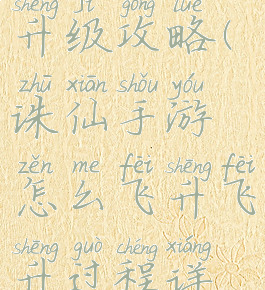 shēng jí gōng lüè
升级攻略(
zhū xiān shǒu yóu
诛仙手游
zěn me fēi shēng fēi
怎么飞升飞
shēng guò chéng xiáng
升过程详